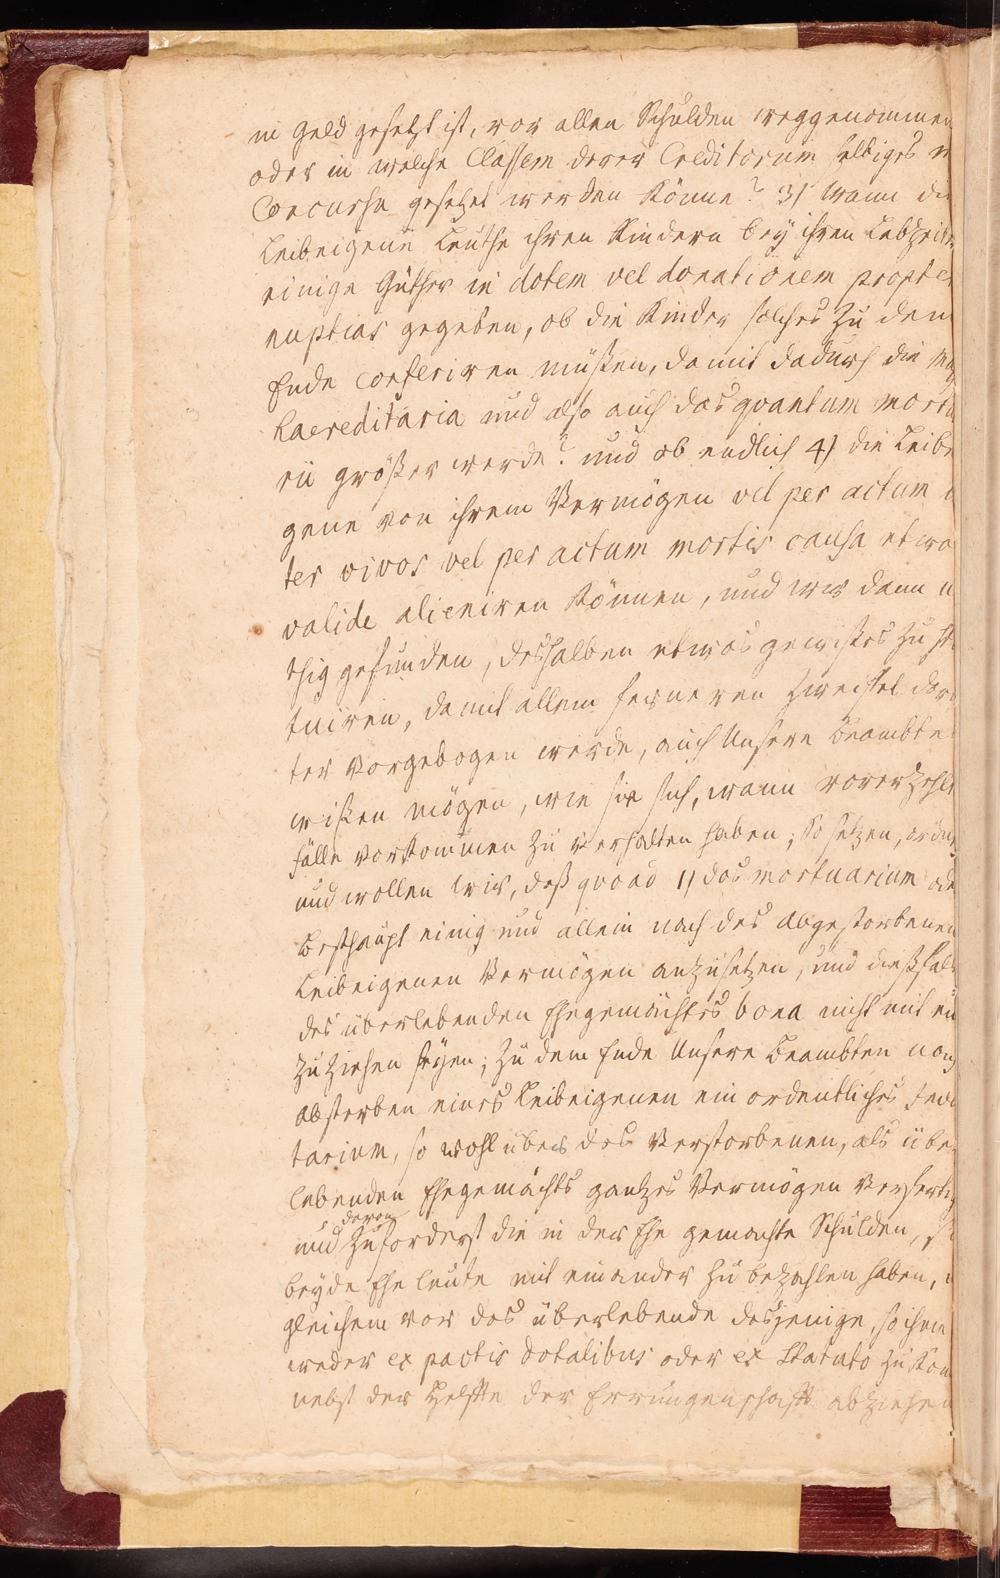 in Geld gesetzt ist, vor allen Schulden weggenommen
oder in welche Classem derer Creditorum selbiges
Concurse gesetzet werden könne? 3) Wann die
Leibeigene Leuthe ihren Kindern bey ihren Lebzeiten
einige Güther in dotem vel donationem propter
nuptias gegeben, ob die Kinder solches zu dem
Ende conferiren müßen, damit dadurch die
haereditaria und also auch das quantum mortu
rii größer werde? und ob endlich 4) die Leibei
gene von ihrem Vermögen vel per actum
ter vivos vel per actum mortis causa etwas
valide alieniren können, und wir dann n
thig gefunden, deshalben etwas gewißes zu st
tuiren, damit allem ferneren Zweiffel dar
ter vorgebogen werde, auch Unsere Beambte
wißen mögen, wie sie sich, wann vorerzehlt
fälle vorkommen zu verhalten haben; So setzen, ordn
und wollen wir, daß quoad 1) das mortuarium oder
Besthaupt einig und allein nach des abgestorbenen
Leibeigenen Vermögen anzusetzen, und dießfals
des überlebenden Ehegemächtes bona nicht mit ein
zuziehen seyen; Zu dem Ende Unsere Beambten nach
Absterben eines Leibeigenen ein ordentliches Inven
tarium, so wohl über des Verstorbenen, als über
lebenden Ehegemächts gantzes Vermögen verferti
davon
und zuforderst die in der Ehe gemachte Schulden, so
beyde Eheleute mit einander zu bezahlen haben,
gleichem vor das überlebende dasjenige, so ihm
weder ex pactis dotalibus oder ex Statuto zukom
nebst der Helffte der Errungenschafft abziehen